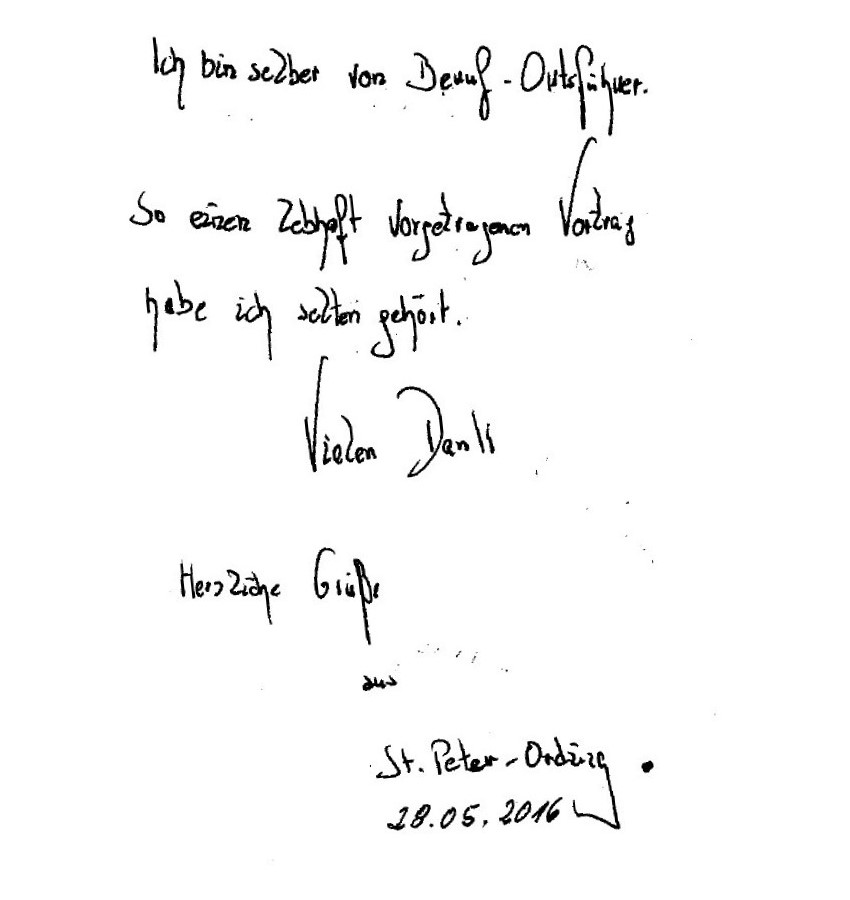 Ich bin selber von Beruf - Ortsführer.
So einen lebhaft vorgetragenen Vortrag
habe ich selten gehört.
Vielen Dank
Herzliche Grüße
aus
St. Peter-Ording.
28.05.2016